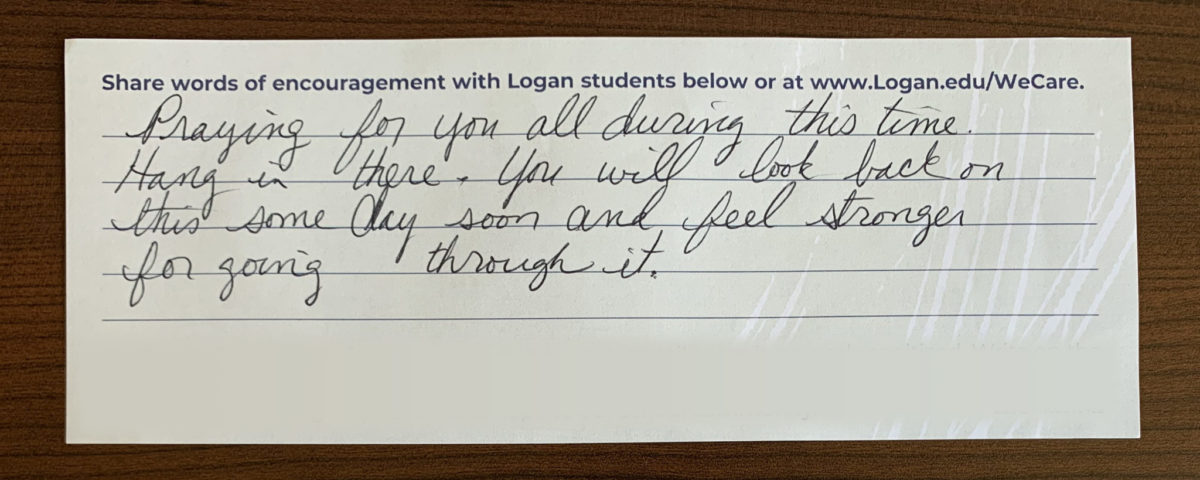 Share words of encouragement with Logan students below or at www.Logan.edu/WeCare.
Praying for you all during this time.
Hang in there. You will look back on
this some day soon and feel stronger
for going through it.